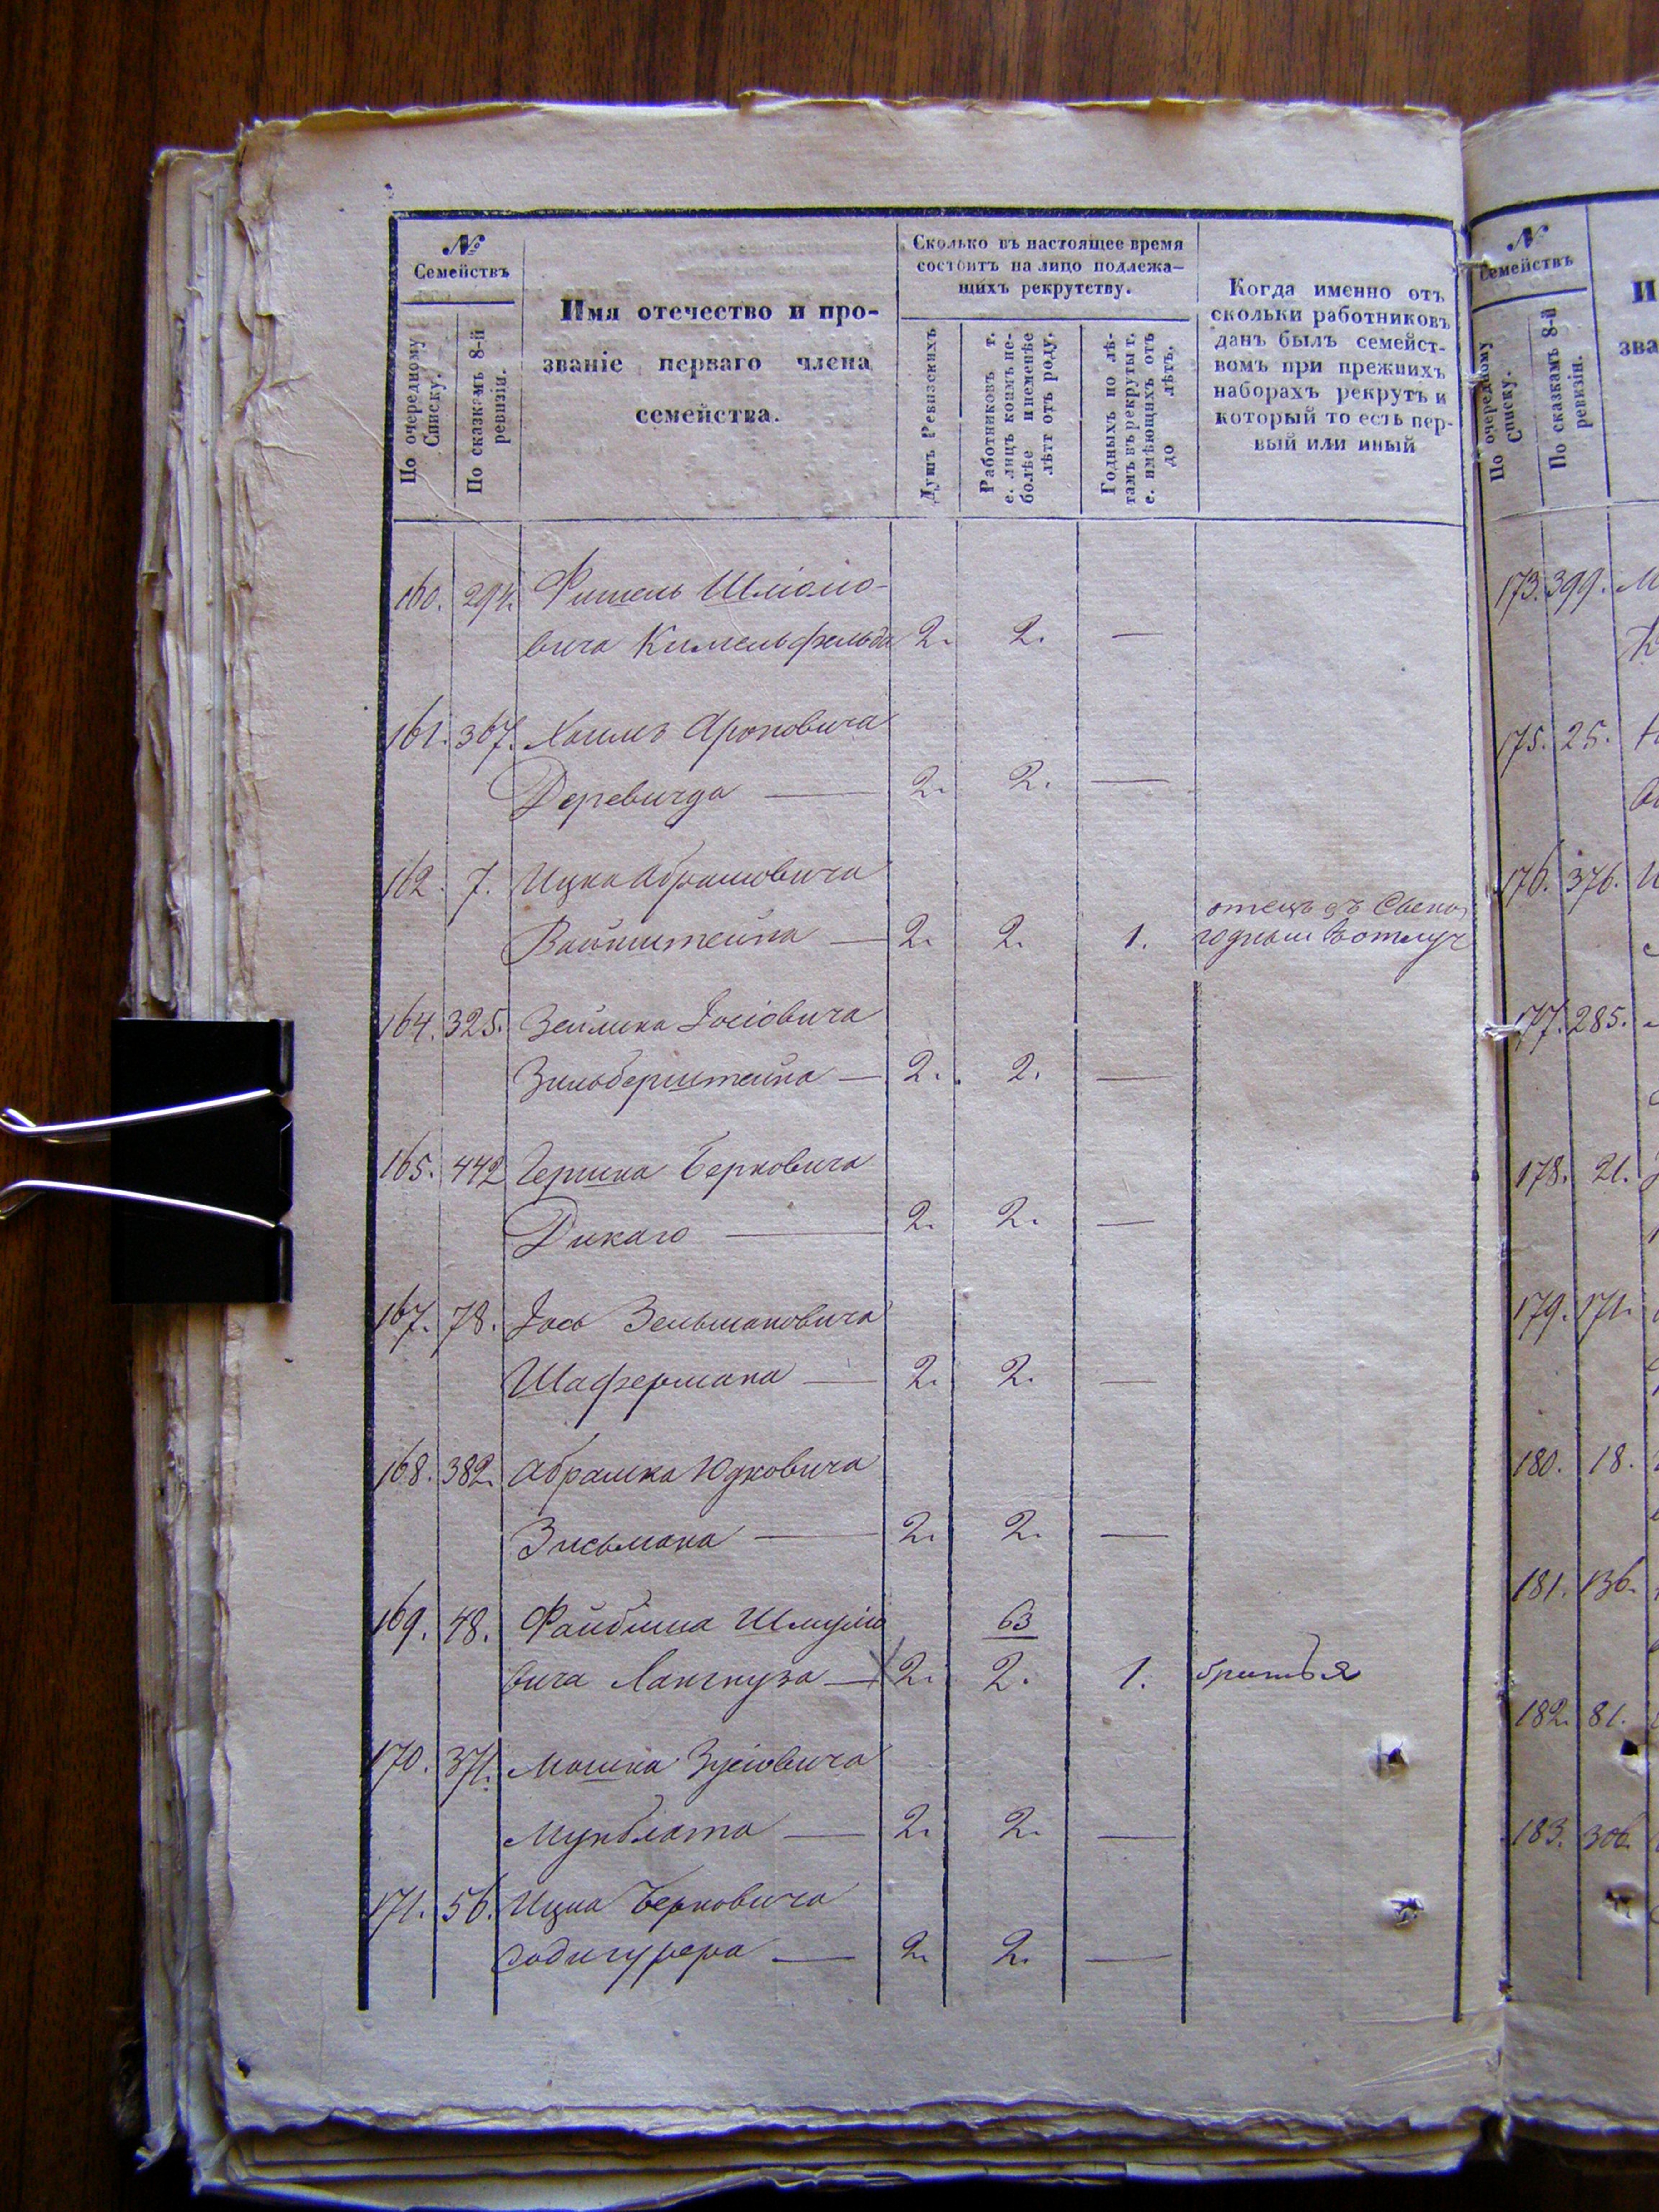 №
Семействъ
По очередному Списку.
По сказкамъ 8-й ревизіи.
Имя отечество и про-
званіе перваго члена
семейства.
Сколько въ настоящее время
состоитъ на лицо подлежа-
щихъ рекрутству.
Душъ Ревизскихъ
Работниковъ т.
е. лицъ коимъ не-
болѣе и неменѣе
лѣтъ отъ роду.
Годныхъ по лѣ-
тамъ въ рекруты т.
е. имѣющихъ отъ
до лѣтъ.
Когда именно отъ
скольки работниковъ
данъ былъ семейст-
вомъ при прежнихъ
наборахъ рекрутъ и
который то есть пер-
вый или иный
160. 294. Фишель Шліомо-
вича Кимельфельда 2. 2. —
161. 367. Хаимъ Ароновича
Деревича — 2. 2. —
162. 7. Ицка Абрамовича
отецъ
Вайнштейна — 2. 2. 1.
164. 325. Зейлика Іосіовича
Зильберштейна — 2. 2. —
165. 442 Гершка Берковича
Дикаго — 2. 2. —
167. 78. Іось Зельмановича
Шафермана — 2. 2. —
168. 382. Абрамка Юдковича
Зисьмана — 2. 2. —
169. 48. Файбиша Шмуліо 63
вича — 2. 2. 1. братья
170. 371. Мошка Зусіовича
Мунблата — 2. 2. —
171. 56. Ицка Берковича
— 2. 2. —
№
Семействъ
По очередному Списку.
По сказкамъ 8-й ревизіи.
И
зва
173. 399.
175. 25.
176. 376.
177. 285.
178. 21.
179. 171.
180. 18.
181. 136.
182. 81.
183. 306.